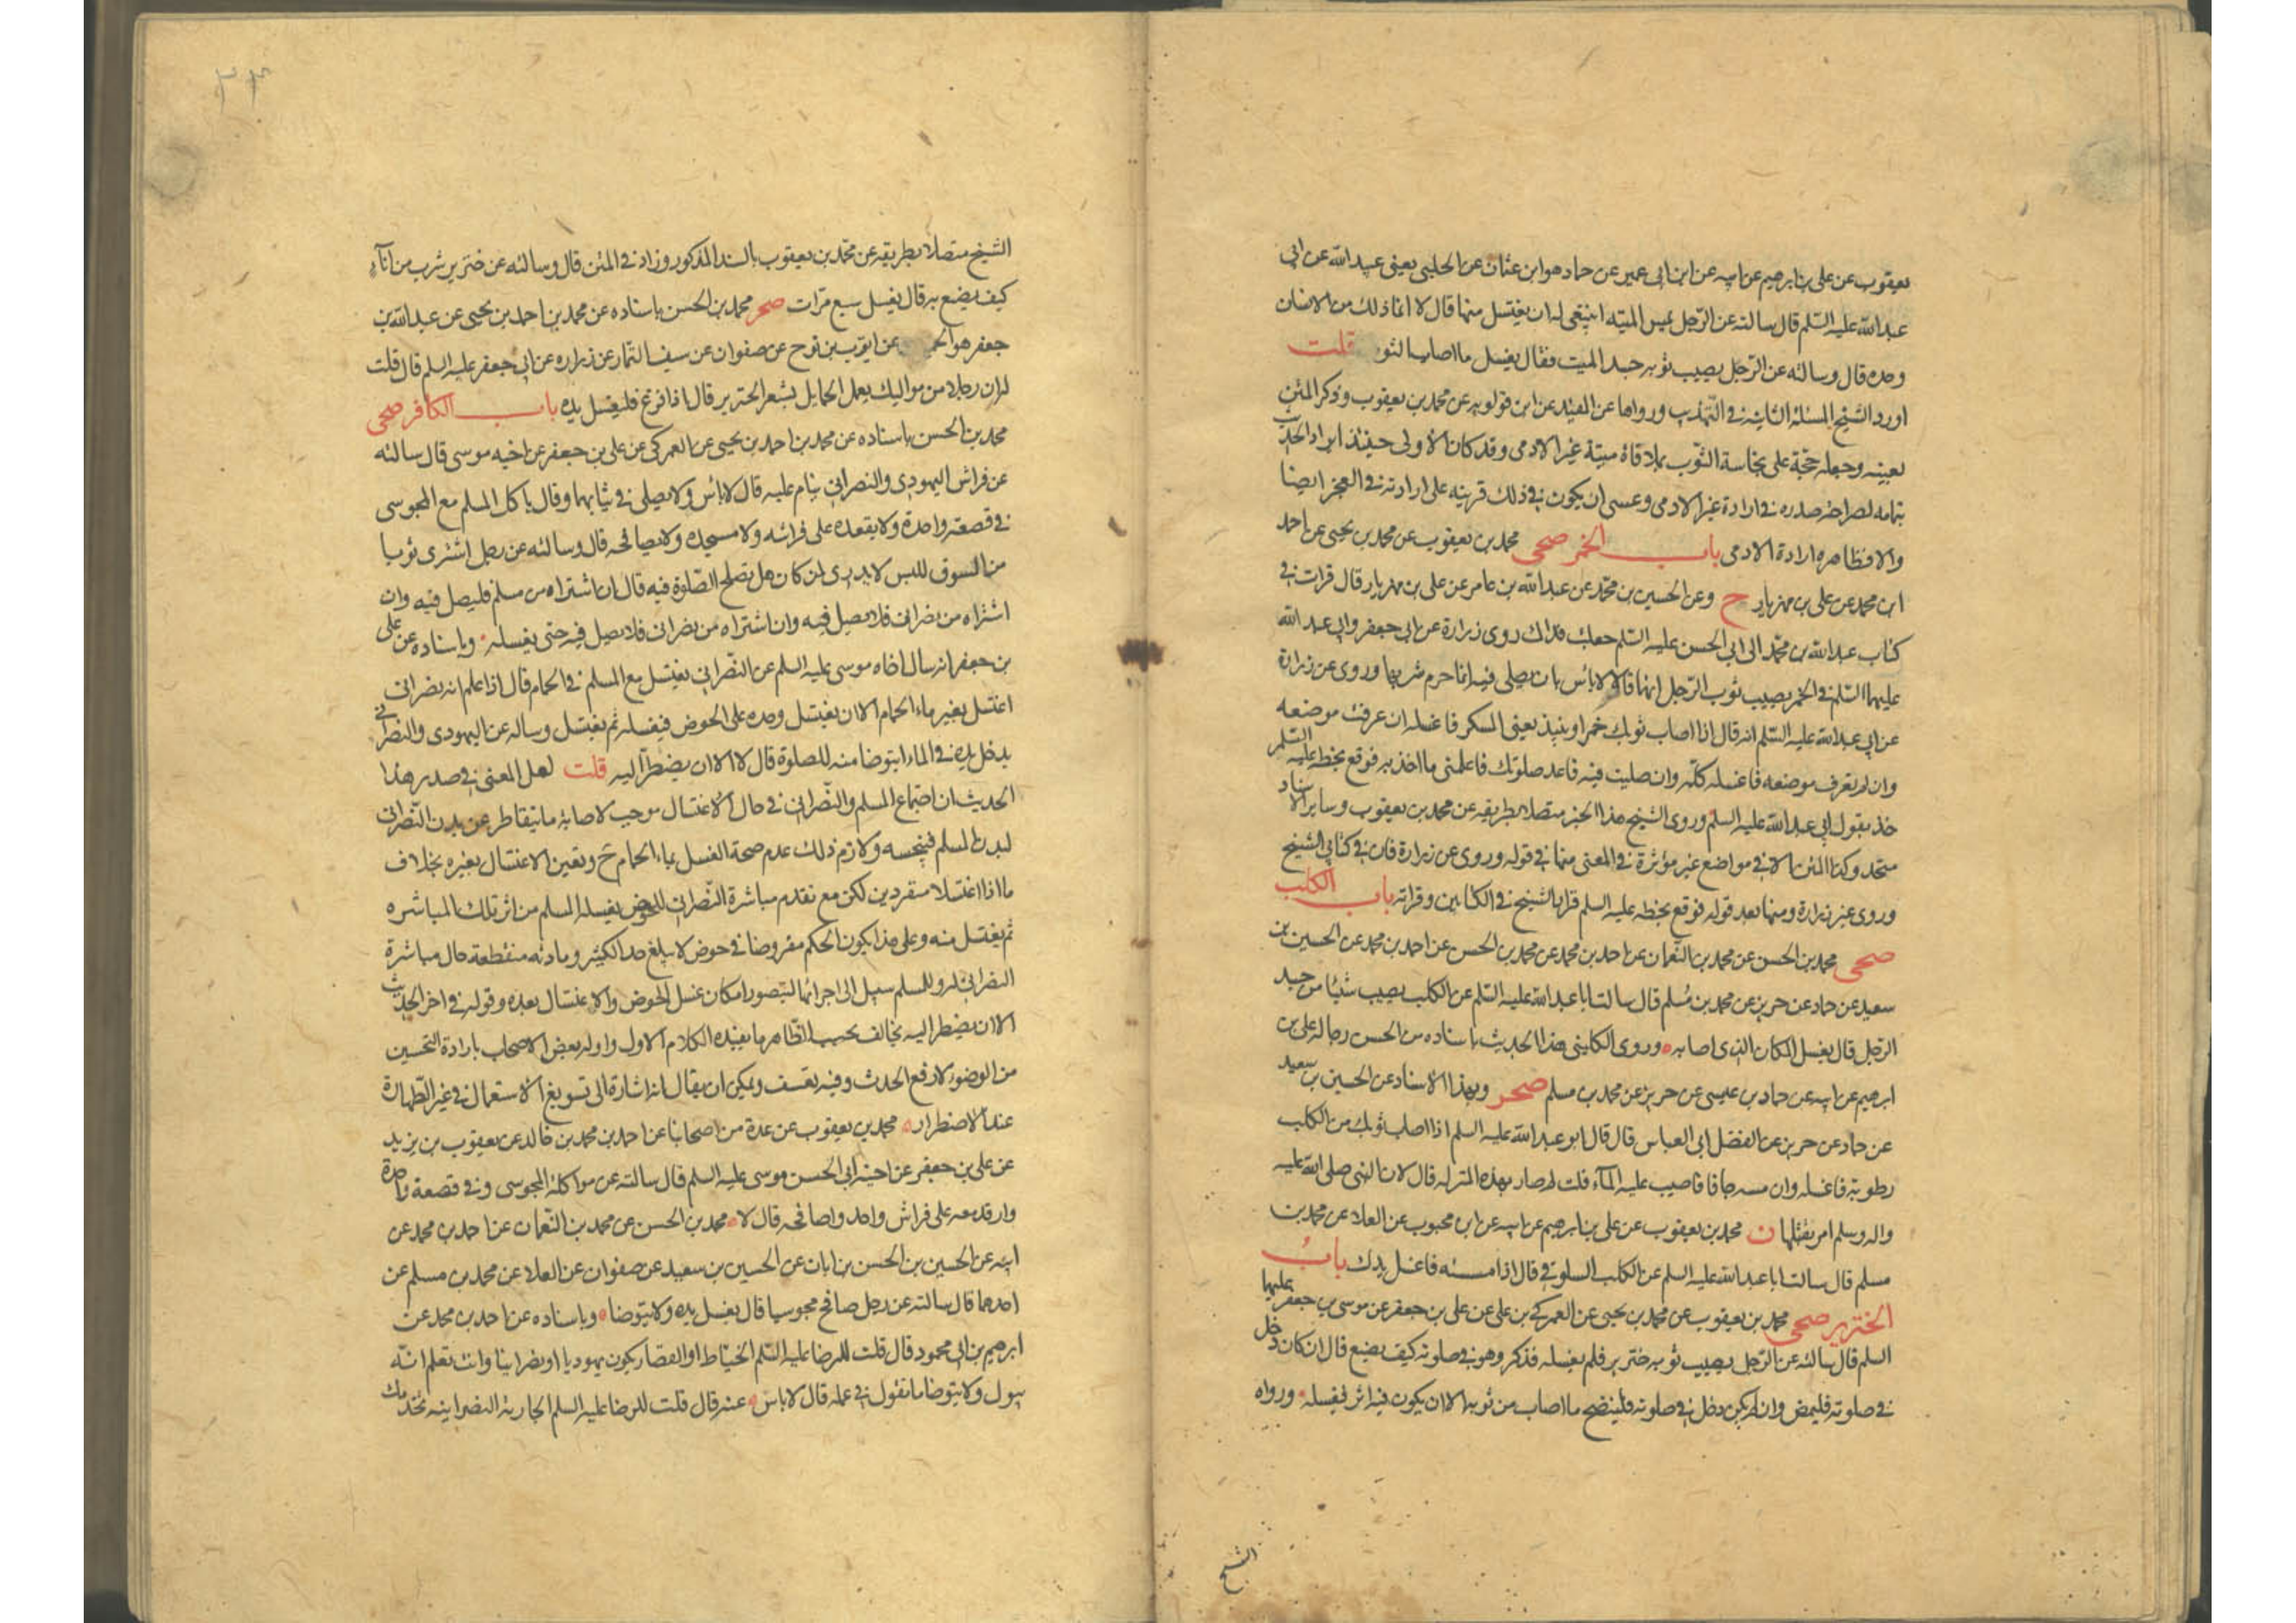 يعقوب عن علي بن ابرهيم عن ابيه عن ابن ابي عمير عن حماد هو ابن عثمان عن الحلبي يعني عبيد الله عن ابي
عبد الله عليه السّلم قال سالته عن الرّجل يمس الميتة اينبغي له ان يغتسل منها قال لا انما ذلك من الانسان
وحده قال وسالته عن الرّجل يصيب ثوبه جسد الميت فقال يغسل ما اصاب الثوب قلت
اورد الشيخ المسئلة الثانية في التّهذيب ورواها عن المفيد عن ابن قولويه عن محمد بن يعقوب وذكر المتن
بعينه وجعله حجّة على نجاسة الثّوب بملاقاة ميتة غير الادمي وقد كان الاولى حينئذ ايراد الحديث
بتمامه لصراحة صدره في ارادة غير الادمي وعسى ان يكون في ذلك قرينة على ارادته في العجز ايضا
والا فظاهره ارادة الادمي باب الخمر صحي محمد بن يعقوب عن محمد بن يحيى عن احمد
ابن محمد عن علي بن مهزيار ح وعن الحسين بن محمّد عن عبد الله بن عامر عن علي بن مهزيار قال قرات في
كتاب عبد الله بن محمّد الى ابي الحسن عليه السّلم جعلت فداك روى زرارة عن ابي جعفر وابي عبد الله
عليهما السّلم في الخمر يصيب ثوب الرّجل انهما قالا لا بأس بان يصلي فيه انما حرم شربها وروى عن زرارة
عن ابي عبد الله عليه السّلم انه قال اذا اصاب ثوبك خمر او نبيذ يعني المسكر فاغسله ان عرفت موضعه
وان لم تعرف موضعه فاغسله كلّه وان صليت فيه فاعد صلوتك فاعلمني ما اخذ به فوقع بخطه عليه السّلم
خذ بقول ابي عبد الله عليه السلم وروى الشيخ هذا الخبر متصلا بطريقه عن محمد بن يعقوب وساير الاسناد
متحد وكذا المتن الا في مواضع غير مؤثرة في المعنى منها في قوله وروى عن زرارة فان في كتابي الشيخ
وروى غير زرارة ومنها بعد قوله فوقع بخطه عليه السلم قراها الشيخ في الكتابين وقراته باب الكلب
صحي محمد بن الحسن عن محمد بن النّعمان عن احمد بن محمد عن محمد بن الحسن عن احمد بن محمد عن الحسين بن
سعيد عن حماد عن حريز عن محمد بن مُسلم قال سالت ابا عبد الله عليه السّلم عن الكلب يصيب شيئا من جسد
الرّجل قال يغسل المكان الذي اصابه وروى الكليني هذا الحديث باسناده من الحسن رجاله علي بن
ابرهيم عن ابيه عن حماد بن عيسى عن حريز عن محمد بن مسلم صحر وبهذا الاسناد عن الحسين بن سعيد
عن حماد عن حريز عن الفضل ابي العباس قال قال ابو عبد الله عليه السلم اذا اصاب ثوبك من الكلب
رطوبة فاغسله وان مسه جافا فاصبب عليه المآء قلت لم صار بهذه المنزلة قال لان النبي صلى الله عليه
واله وسلم امر بقتلها ن محمد بن يعقوب عن علي بن ابرهيم عن ابيه عن ابن محبوب عن العلا عن محمد بن
مسلم قال سالت ابا عبد الله عليه السلم عن الكلب السلوقي قال اذا مسسته فاغسل يدك باب
الخنزير صحي محمد بن يعقوب عن محمد بن يحيى عن العمركي بن علي عن علي بن جعفر عن موسى بن جعفر عليهما
السلم قال سالته عن الرّجل يصيب ثوبه خنزير فلم يغسله فذكر وهو في صلوته كيف يصنع قال ان كان دخل
في صلوته فليمض وان لم يكن دخل في صلوته فلينضح ما اصاب من ثوبه الا ان يكون فيه اثر فيغسله ورواه
الشيخ
٣٤
الشيخ متصلا بطريقه عن محمّد بن يعقوب بالسند المذكور وزاد في المتن قال وسالته عن خنزير شرب من انآء
كيف يصنع به قال يغسل سبع مرّات صحر محمد بن الحسن باسناده عن محمد بن احمد بن يحيى عن عبد الله بن
جعفر هو الحميري عن ايّوب بن نوح عن صفوان عن سيف التّمار عن زراره عن ابي جعفر عليه السلم قال قلت
له ان رجلا من مواليك يعمل الحمايل بشعر الخنزير قال اذا فرغ فليغسل يده باب الكافر صحي
محمد بن الحسن باسناده عن محمد بن احمد بن يحيى عن العمركي عن علي بن جعفر عن اخيه موسى قال سالته
عن فراش اليهودي والنصراني ينام عليه قال لا بأس ولا يصلى في ثيابهما وقال لا ياكل المسلم مع المجوسي
في قصعة واحدة ولا يقعده على فراشه ولا مسجده ولا يصافحه قال وسالته عن رجل اشترى ثوبا
من السوق للبس لا يدري لمن كان هل تصلح الصّلوة فيه قال ان اشتراه من مسلم فليصل فيه وان
اشتراه من نصراني فلا يصل فيه وان اشتراه من نصراني فلا يصل فيه حتى يغسله وباسناده عن علي
بن جعفر انه سال اخاه موسى عليه السلم عن النّصراني يغتسل مع المسلم في الحمام قال اذا علم انه نصراني
اغتسل بغير ماء الحمام الا ان يغتسل وحده على الحوض فيغسله ثم يغتسل وساله عن اليهودي والنصراني
يدخل يده في الماء ايتوضا منه للصلوة قال لا الا ان يضطر اليه قلت لعل المعنى في صدر هذا
الحديث ان اجتماع المسلم والنّصراني في حال الاغتسال موجب لاصابة ما يتقاطر عن بدن النّصراني
لبدن المسلم فينجسه ولازم ذلك عدم صحة الغسل بماء الحمام ح وتعين الاغتسال بغيره بخلاف
ما اذا اغتسلا منفردين لكن مع تقدم مباشرة النّصراني للحوض يغسله المسلم من اثر تلك المباشره
ثم يغتسل منه وعلى هذا يكون الحكم مفروضا في حوض لا يبلغ حد الكثير ومادته منقطعة حال مباشرة
النصراني له وللمسلم سبيل الى اجرائها ليتصور امكان غسل الحوض والاغتسال بعده وقوله في اخر الحديث
الا ان يضطر اليه يخالف بحسب الظّاهر ما يفيده الكلام الاول واوله بعض الاصحاب بارادة التحسين
من الوضوء لا رفع الحدث وفيه تعسف ويمكن ان يقال انه اشارة الى تسويغ الاستعمال في غير الطّهارة
عند الاضطرار محمد بن يعقوب عن عدة من اصحابنا عن احمد بن محمد بن خالد عن يعقوب بن يزيد
عن علي بن جعفر عن اخيه ابي الحسن موسى عليه السلم قال سالته عن مواكلة المجوسي في قصعة واحدة
وارقد معه على فراش واحد واصافحه قال لا محمد بن الحسن عن محمد بن النّعمان عن احمد بن محمد عن
ابيه عن الحسين بن الحسن بن ابان عن الحسين بن سعيد عن صفوان عن العلا عن محمد بن مسلم عن
احدهما قال سالته عن رجل صافح مجوسيا قال يغسل يده ولا يتوضا وباسناده عن احمد بن محمد عن
ابرهيم بن ابي محمود قال قلت للرضا عليه السّلم الخيّاط او القصّار يكون يهوديا او نصرانيا وانت تعلم انّه
يبول ولا يتوضا ما تقول في عمله قال لا باس عنه قال قلت للرضا عليه السلم الجارية النصرانيه تخدمك